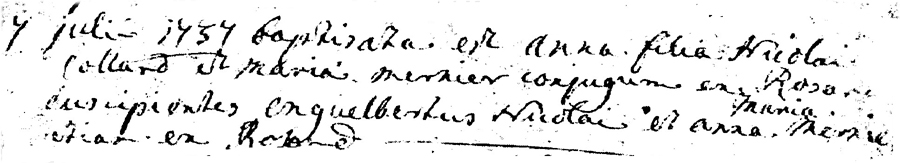 7 julii 1757 baptisata est anna filia Nicolai
Collard et maria mernier conjugum en Rosar
suscipientes enguelbertus Nicolai et anna maria merni
etiam en